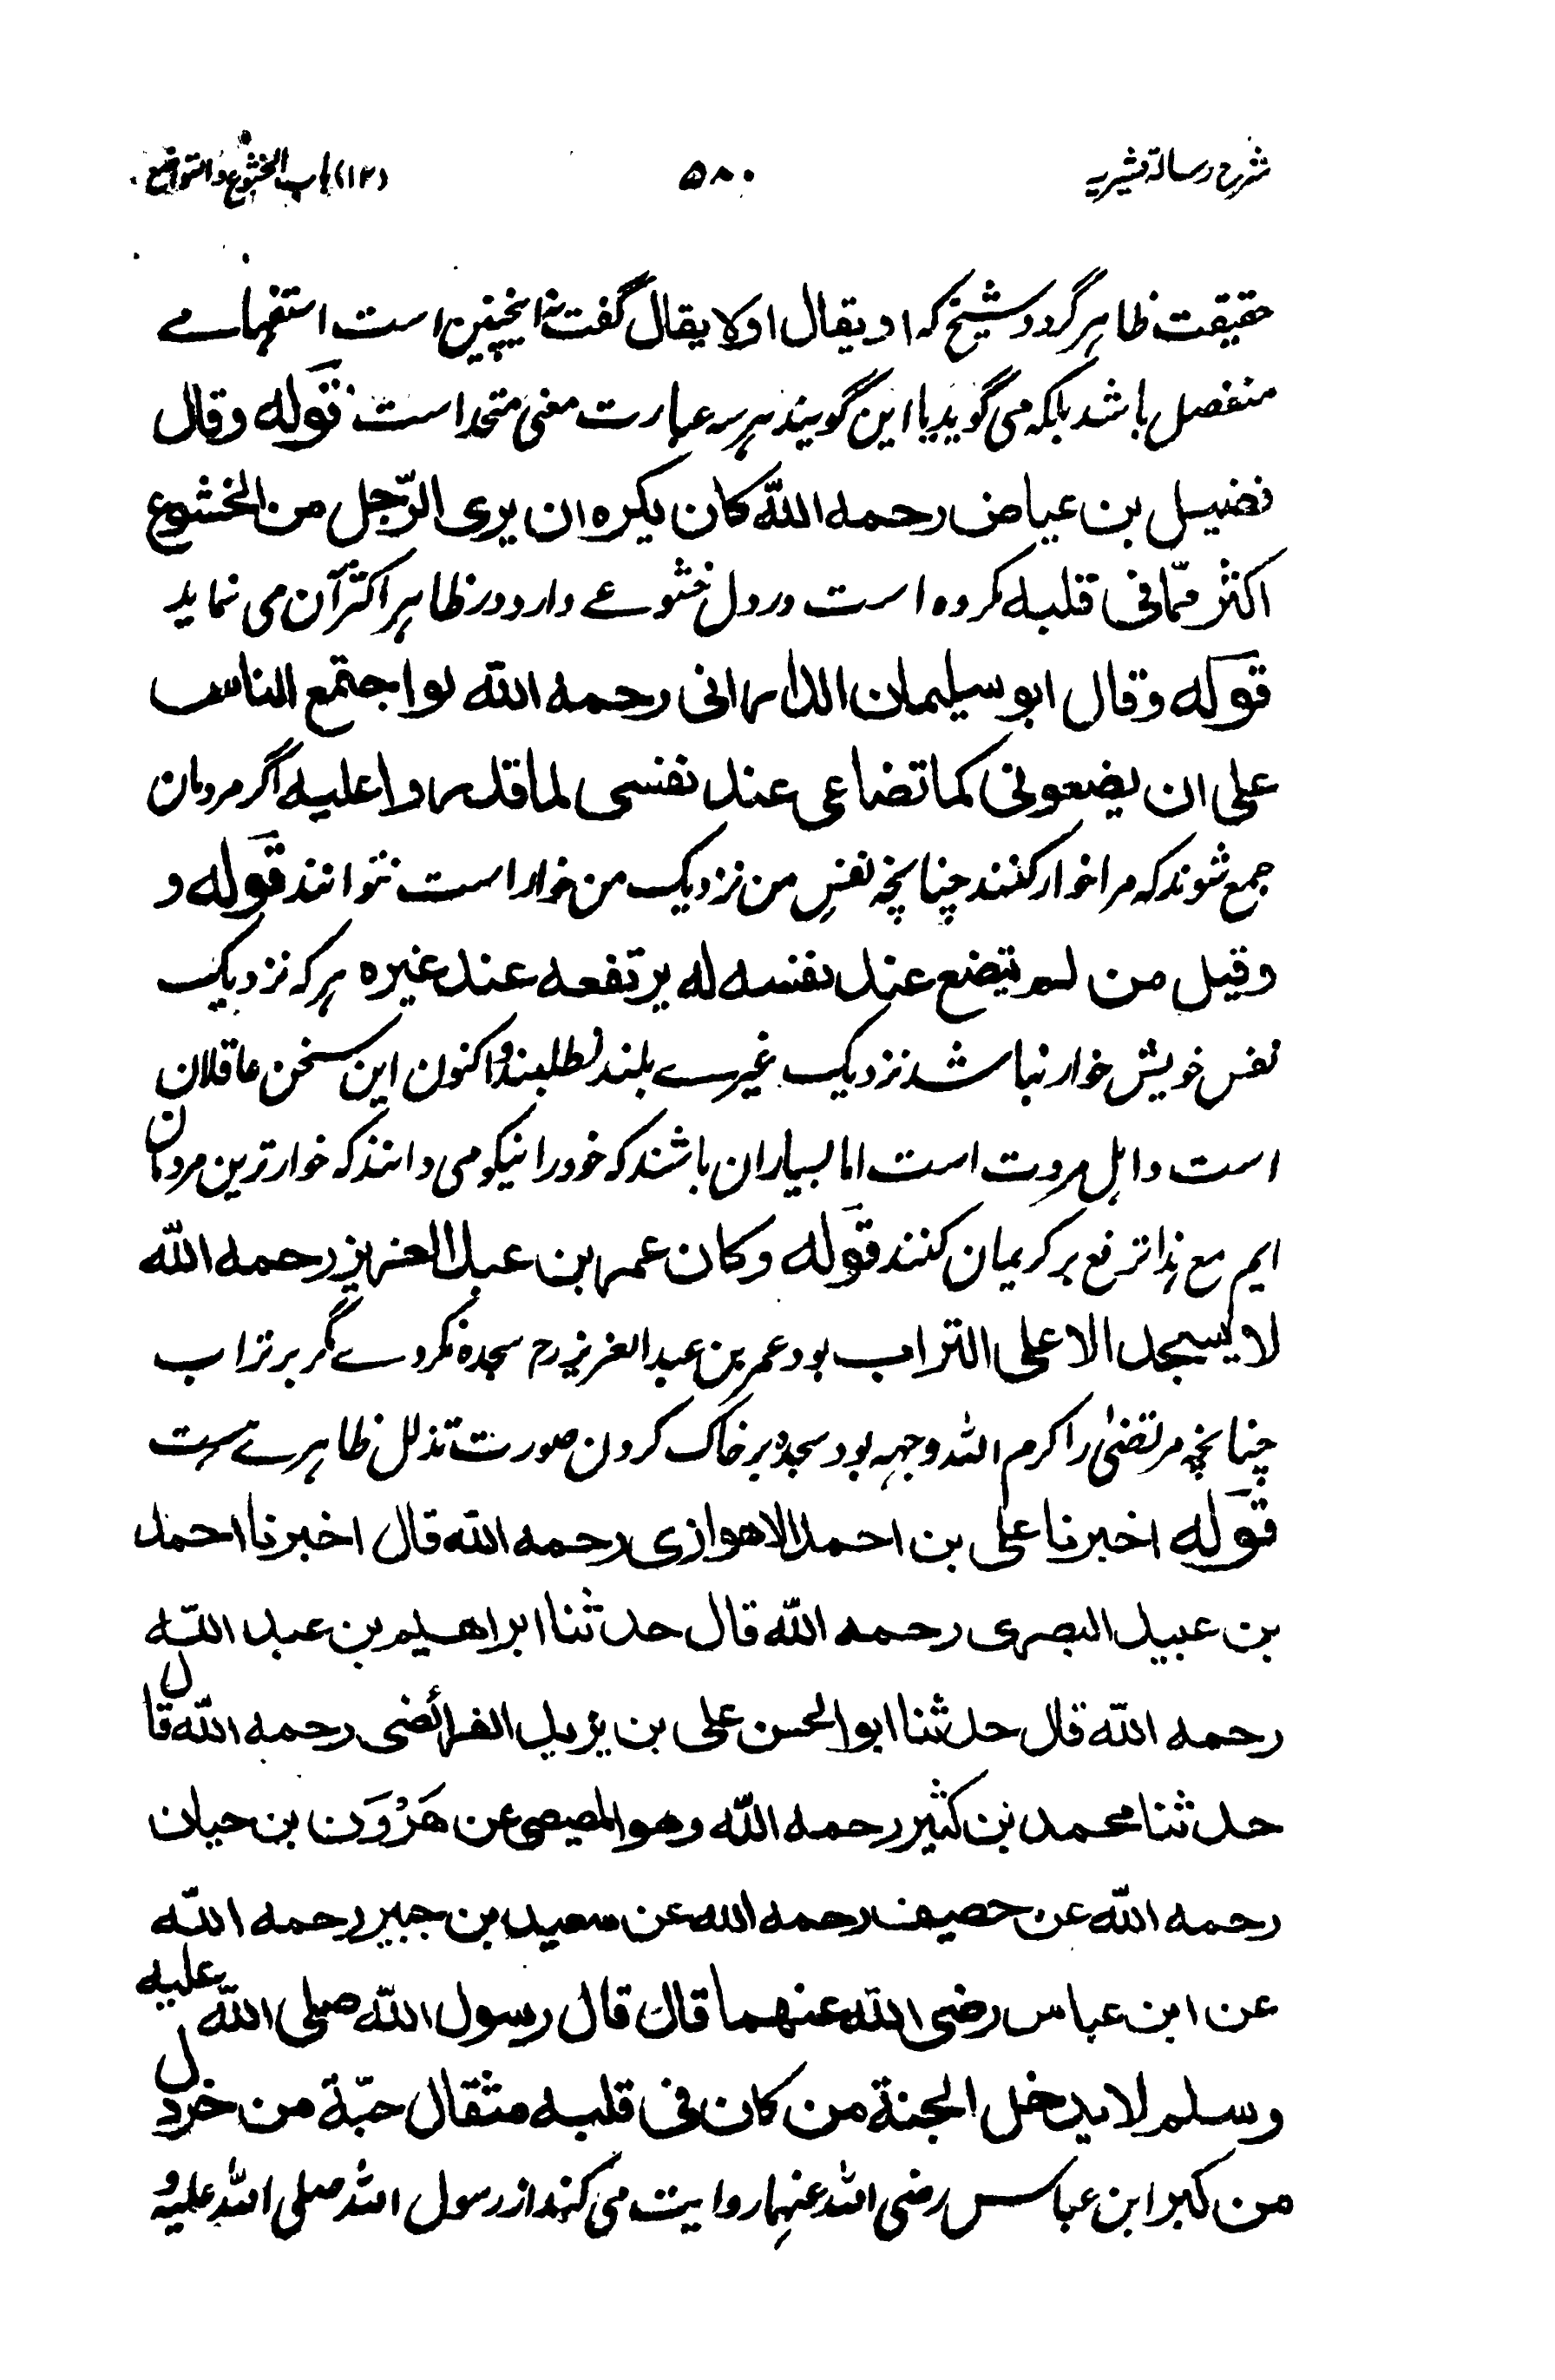 شرح رسالة قشیریه ۵۸۰ (۱۲) باب الخشوع والتواضع
حقیقت ظاہر گردد و شیخ کہ او یقال اولا یقال گفت نہ اینچنین است استفہامے
منفصل باشد بلکہ می گوید یا این گویند ہر سہ عبارت معنی متحد است قوله وقال
فضیل بن عیاض رحمه الله کان یکره ان یری الرّجل من الخشوع
اکثر ممّا فی قلبه کروه است در دل خشوعے دارد و در ظاہر اکثر آن می نماید
قوله وقال ابو سلیمان الدارانی رحمه الله لو اجتمع الناس
علی ان یضعونی کما تضاعی عند نفسی لما قدروا علیه اگر مردمان
جمع شوند کہ مرا خوار کنند چنانچہ نفسِ من نزدیک من خوار است نتوانند قوله و
وقیل من لم یتضع عند نفسه له یرتفعه عند غیره ہر کہ نزدیک
نفس خویش خوار نباشد نزدیک غیرے بلند نطلبند و اکنون این سخن عاقلان
است و اہل مروت است اما بسیاران باشند کہ خود را نیکو می دانند کہ خوار ترین مردمان
ایم مع ہذا ترفع بر کریمان کنند قوله وکان عمر بن عبد العزیز رحمه الله
لا یسجد الا علی التراب بود عمر بن عبد العزیز رح سجدہ نکردے مگر بر تراب
چنانچہ مرتضیٰ را کرم اللہ وجہہ بود سجدہ بر خاک کردن صورت تذلل ظاہرے ست
قوله اخبرنا علی بن احمد الاهوازی رحمه الله قال اخبرنا احمد
بن عبید البصری رحمه الله قال حدثنا ابراهیم بن عبد الله
رحمه الله قال حدثنا ابو الحسن علی بن یزید الفرائضی رحمه الله قال
حدثنا محمد بن کثیر رحمه الله وهو المصیصی عن هَرْوَن بن حبان
رحمه الله عن حصیف رحمه الله عن سعید بن جبیر رحمه الله
عن ابن عباس رضی الله عنهما قال قال رسول الله صلی الله علیه
وسلم لا یدخل الجنة من کان فی قلبه مثقال حبّة من خردل
من کبر ابن عباس رضی اللہ عنہما روایت می کند از رسول اللہ صلی اللہ علیہ و